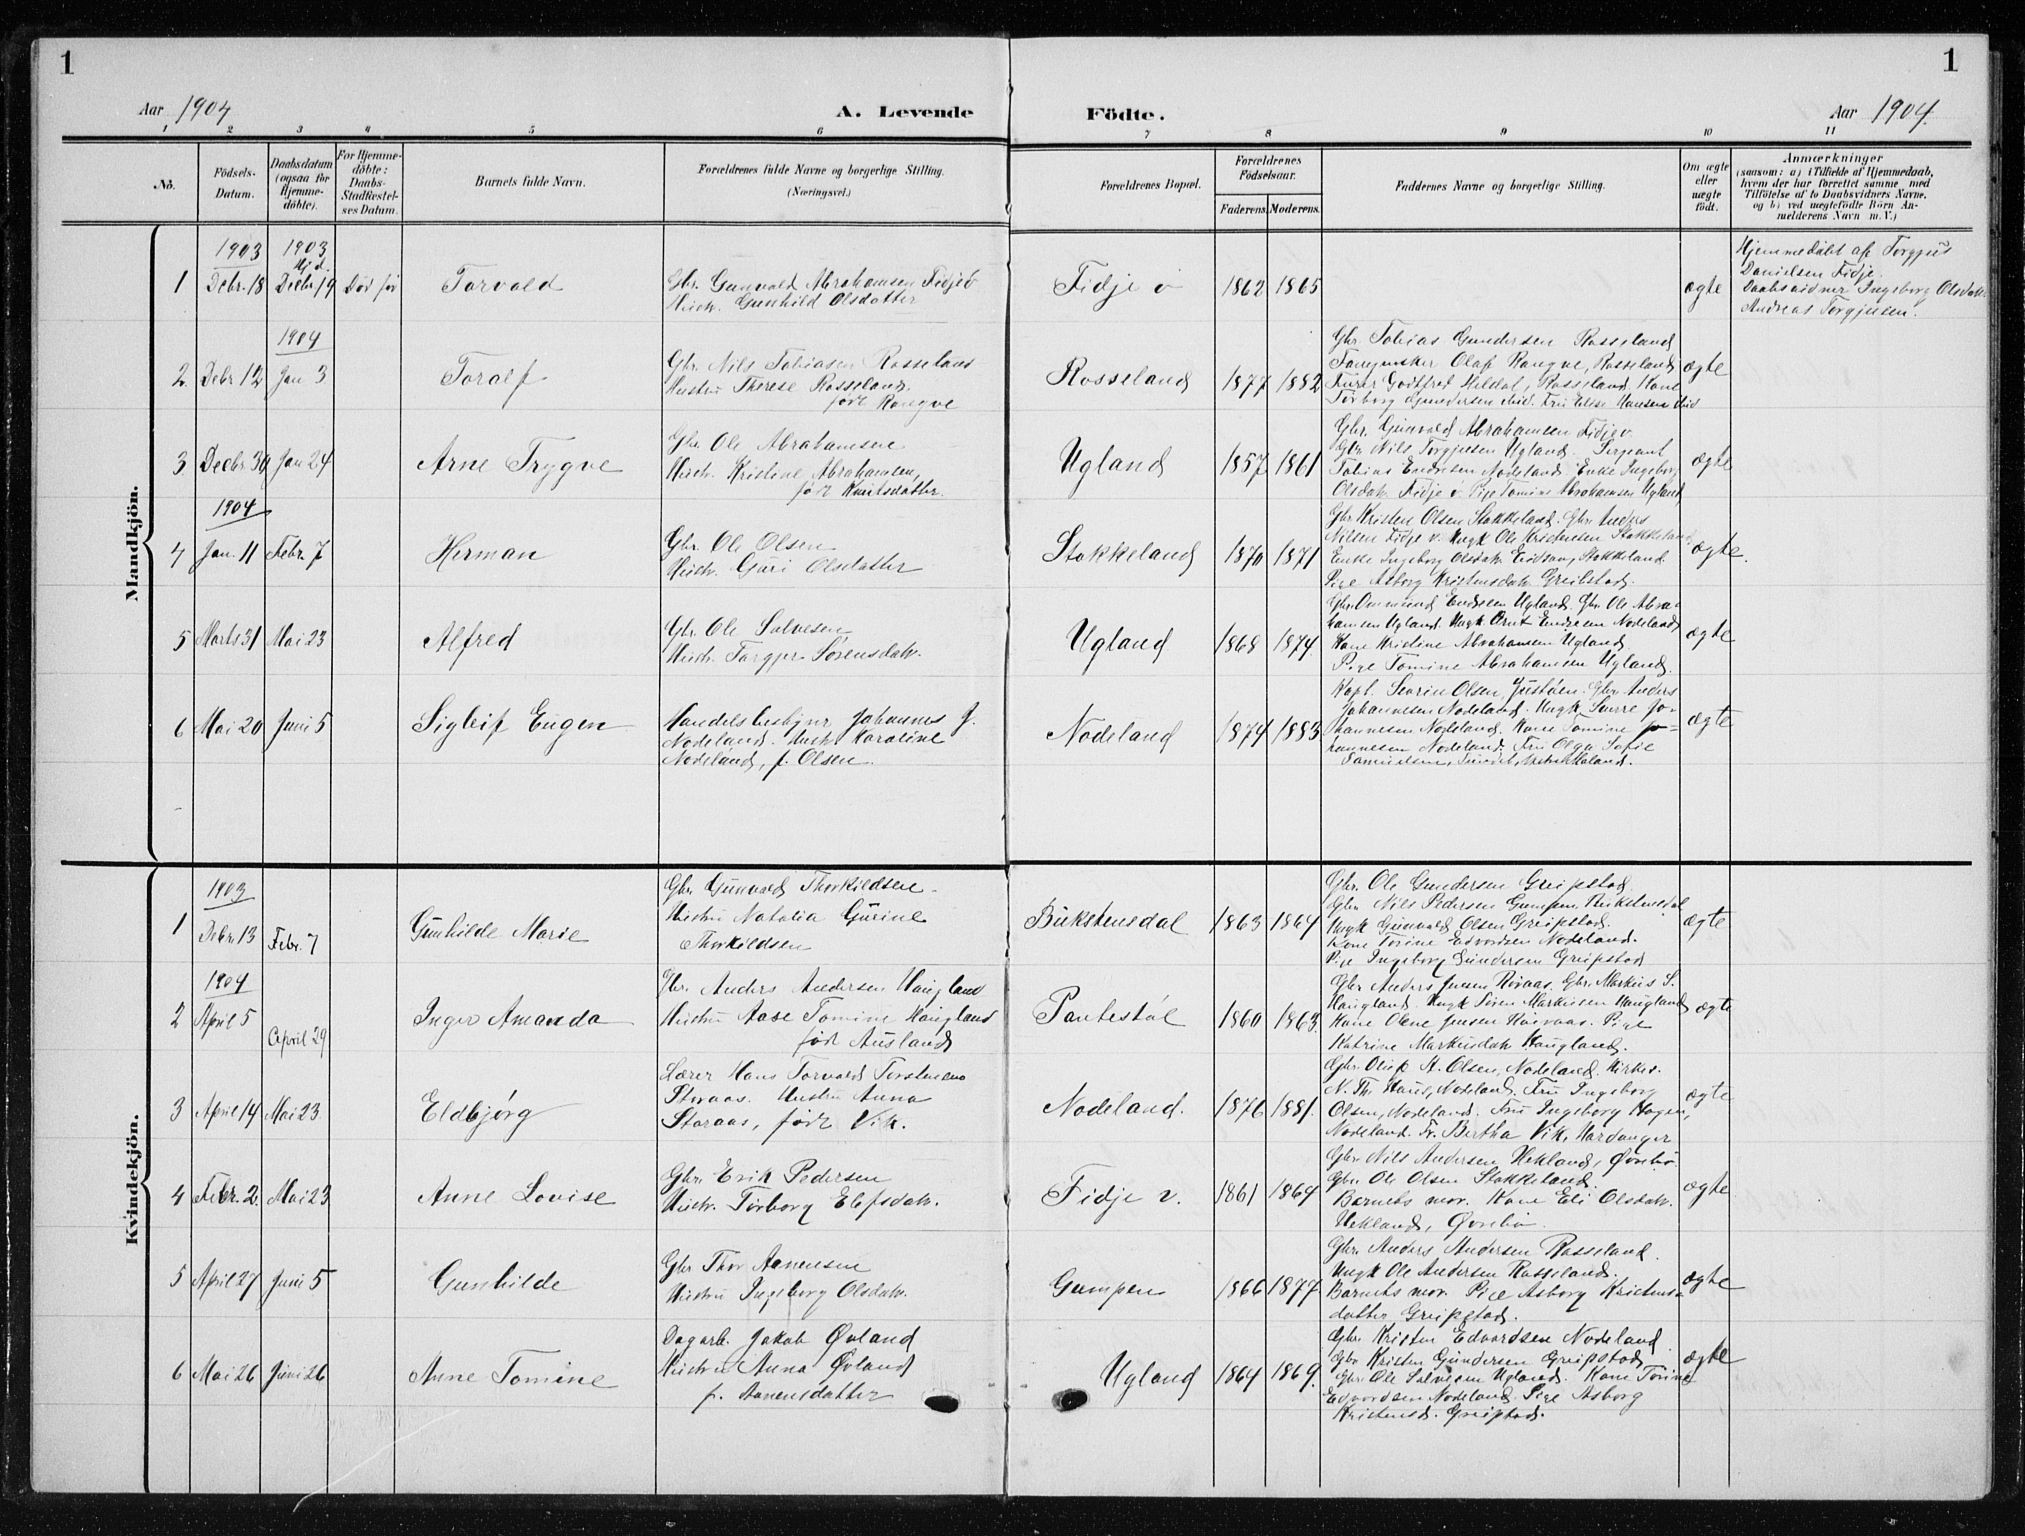 1
1
Aar 1904
A. Levende
Födte.
Aar 1904.
1 2 3 4 5 6 7 8 9 10 11
No.
Födsels-
Datum.
Daabsdatum
(ogsaa for
Hjemme-
döbte).
For Hjemme-
döbte:
Daabs-
Stadfæstel-
ses Datum.
Barnets fulde Navn.
Forældrenes fulde Navne og borgerlige Stilling.
(Næringsvei.)
Forældrenes Bopæl.
Forældrenes
Födselsaar.
Faderens.
Moderens.
Faddernes Navne og borgerlige Stilling.
Om ægte
eller
uægte
födt.
Anmærkninger
(saasom: a) i Tilfælde af Hjemmedaab,
hvem der har forrettet samme, med
Tilföielse af to Daabsvidners Navne,
og b) ved uægtefödte Börn An-
melderens Navn m. V.)
Mandkjön.
1903
1903
Hj.d.
1 Decbr. 18 Decbr. 19 Død før Torvald
Gbr. Gunvald Abrahamsen Fidje ø
Hustr. Gunhild Olsdatter
Fidje ø 1862 1865
ægte
Hjemmedøbt af Torgjus
Danielsen Fidje.
Daabsvidner Ingeborg Olsdatr.
Andreas Torgjusen.
1904
2 Decbr. 12 Jan 3 Toralf
Gbr. Nils Tobiasen Rosseland
Hustru Therese Rosseland,
født Rongve
Rosseland 1877 1882
Gbr. Tobias Gundersen Rosseland
Olaf Rongve, Rosseland
Godtfred Heldal, Rosseland Kone
Torborg Gundersen ibid. Fru Elise Hansen ibid
ægte
3 Decbr. 30 Jan 24 Arne Trygve
Gbr. Ole Abrahamsen
Hustr. Kristine Abrahamsen,
født Knutsdatter.
Ugland 1857 1861
Gbr. Gunvald Abrahamsen Fidje ø
Gbr. Nils Torgjusen Ugland. Sergeant
Tobias Endresen Nodeland Enke Ingeborg
Olsdatr. Fidje ø Pige Tomine Abrahamsen Ugland
ægte
1904
4 Jan. 11 Febr. 7 Herman
Gbr. Ole Olsen
Hustr. Guri Olsdatter
Stokkeland 1870 1871
Gbr. Kristen Olsen Stokkeland. Gbr. Anders
Nilsen Fidje v. Ungk Ole Kristensen Stokkeland
Enke Ingeborg Olsdatr. Stokkeland.
Pige Asborg Kristensdatr. Greibstad.
ægte.
5 Marts 31 Mai 23 Alfred
Gbr. Ole Salvesen
Hustr. Torgjer Sørensdatr.
Ugland 1868 1874
Gbr. Ommund Endresen Ugland. Gbr. Ole Abra-
hamsen Ugland. Ungk Ornt Endresen Nodeland
Kone Kristine Abrahamsen Ugland
Pige Tomine Abrahamsen Ugland.
ægte
6 Mai 20 Juni 5 Sigleif Eugen
Handelsbestyrer Johannes J.
Nodeland. Hustr. Karoline
Nodeland, f. Olsen.
Nodeland 1874 1883
Kapt. Severin Olsen, Justøen. Gbr. Anders
Johannesen Nodeland. Ungk. Sverre Jo-
hannesen Nodeland. Kone Tomine Jo-
hannesen Nodeland Fru Olga Sofie
Samuelsen,
ægte
Kvindekjön.
1903
1 Decbr. 13 Febr. 7 Gunhilde Marie
Gbr. Gunvald Thorkildsen
Hustru Natalia Gurine
Thorkildsen
Bukstensdal 1863 1864
Gbr. Ole Gundersen Greipstad
Gbr Nils Pedersen Gumpen, Bukstensdal
Ungk Gunvald Olsen Greipstad.
Kone Torine Edvardsen Nodeland.
Pige Ingeborg Gundersen Greipstad
ægte
1904
2 April 5 April 29 Inger Amanda
Gbr. Anders Andersen Haugland
Hustru Aase Tomine Haugland
født Ausland
Pantestøl 1860 1863.
Gbr Anders Jensen Røiaas. Gbr. Markus S.
Haugland. Ungk Søren Markusen Haugland
Kone Olene Jensen Pige
Katrine Markusdatr. Haugland.
ægte
3 April 14 Mai 23. Eldbjørg
Lærer Hans Torvald Torstensen
Storaas. Hustru Anna
Storaas, født Vik.
Nodeland. 1876 1881.
Gbr. Oluf A. Olsen, Nodeland. Kirkes.
N. Th. Haus, Nodeland. Fru Ingeborg
Olsen, Nodeland. Fru Ingeborg Hagen,
Nodeland. Fr. Bertha Vik, Hardanger
ægte
4 Febr. 2. Mai 23 Anne Lovise
Gbr. Erik Pedersen
Hustr. Torborg Elefsdatr.
Fidje v. 1861 1864
Gbr. Nils Andersen Hekland, Øvrebø
Gbr. Ole Olsen Stokkeland.
Barnets mor. Kone Eli Olsdatr.
Hekland, Øvrebø.
ægte
5 April 27 Juni 5 Gunhilde
Gbr Thor Aanensen
Hustru Ingeborg Olsdatr.
Gumpen 1866 1877.
Gbr. Anders Andersen Rosseland.
Ungk Ole Andersen Rosseland.
Barnets mor. Pige Asborg Kristens-
datter Greipstad.
ægte
6 Mai 26 Juni 26 Anne Tomine
Dagarb. Jakob Øvland
Hustru Anna Øvland
f. Aanensdatter
Ugland 1864 1869.
Gbr. Kristen Edvardsen Nodeland.
Gbr Kristen Gundersen Greipstad
Gbr. Ole Salvesen Ugland. Kone Torine
Edvardsen Nodeland. Pige Asborg
Kristensd. Greipstad.
ægte